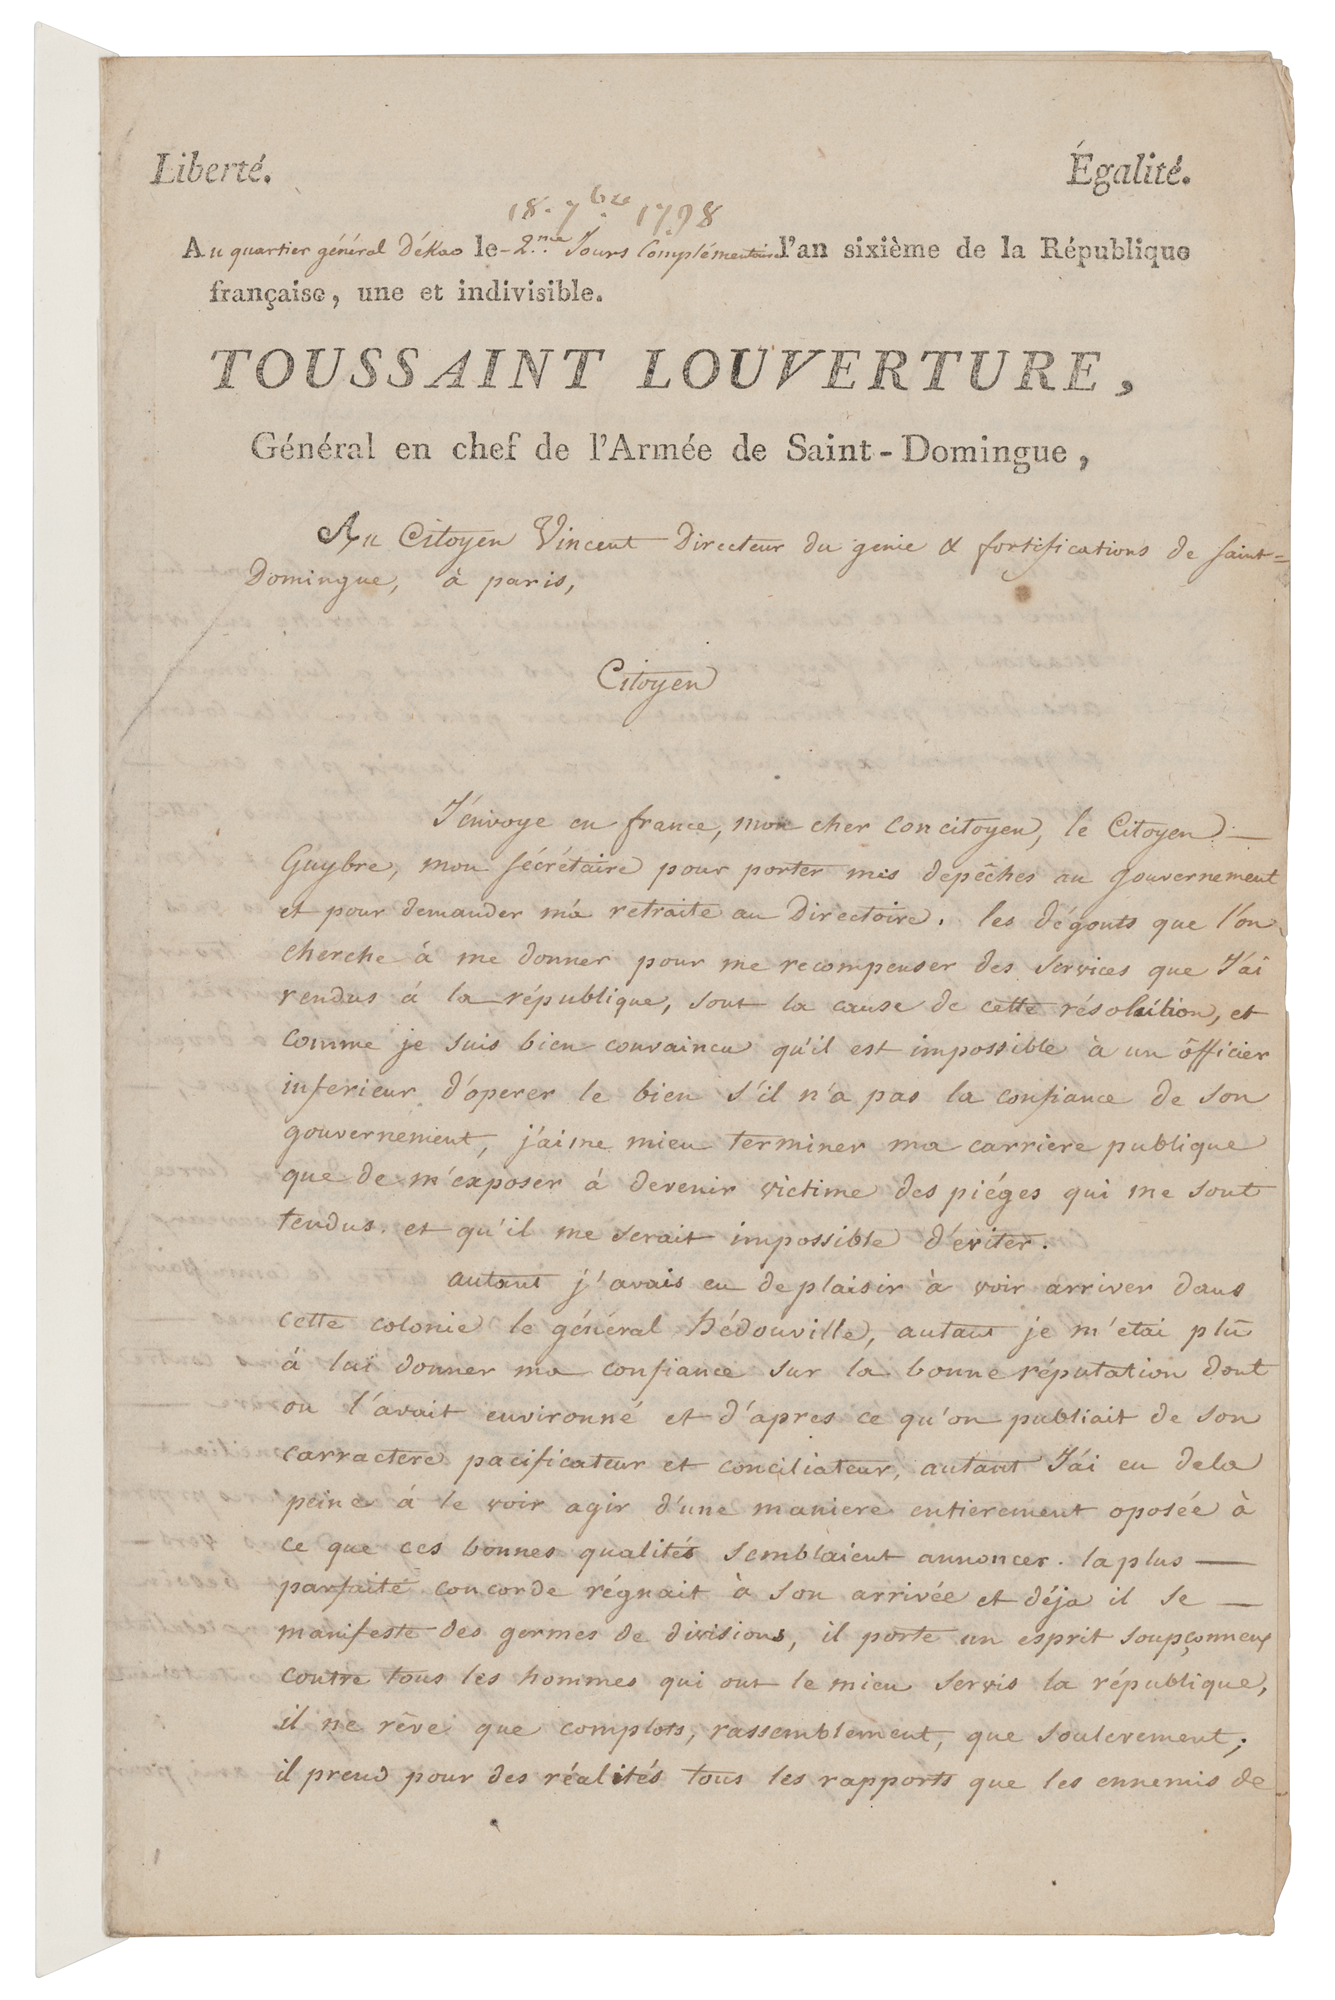 Liberté.
Égalité.
18. 7bre 1798
Au quartier général Dékao le 2.me Jours Complémentaire l'an sixième de la République
française, une et indivisible.
TOUSSAINT LOUVERTURE,
Général en chef de l'Armée de Saint-Domingue,
Au Citoyen Vincent Directeur du genie & fortifications de saint=
Domingue, à paris,
Citoyen
J'envoye en france, mon cher concitoyen, le Citoyen
Guybre, mon sécrétaire pour porter mes depêches au gouvernement
et pour demander ma retraite au Directoire. les dégouts que l'on
cherche à me donner pour me recompenser des services que J'ai
rendus à la république, sont la cause de cette résolution, et
comme je suis bien convaincu qu'il est impossible à un officier
inferieur d'óperer le bien s'il n'a pas la confiance de son
gouvernement, j'aime mieu terminer ma carriere publique
que de m'exposer à devenir victime des piéges qui me sont
tendus. et qu'il me serait impossible d'eviter.
autant j'avais eu de plaisir à voir arriver dans
cette colonie le général hédouville, autant je m'etai plû
à lui donner ma confiance sur la bonne réputation dont
on l'avait environné et d'apres ce qu'on publiait de son
carractere pacificateur et conciliateur, autant J'ai eu de la
peine à le voir agir d'une maniere entierement oposée à
ce que ces bonnes qualités semblaient annoncer. la plus
parfaite concorde régnait à son arrivée et déja il se
manifeste des germes de divisions, il porte un esprit soupçonneux
contre tous les hommes qui ont le mieu servis la république,
il ne rêve que complots, rassemblement, que soulevement;
il prend pour des réalités tous les rapports que les ennemis de
1